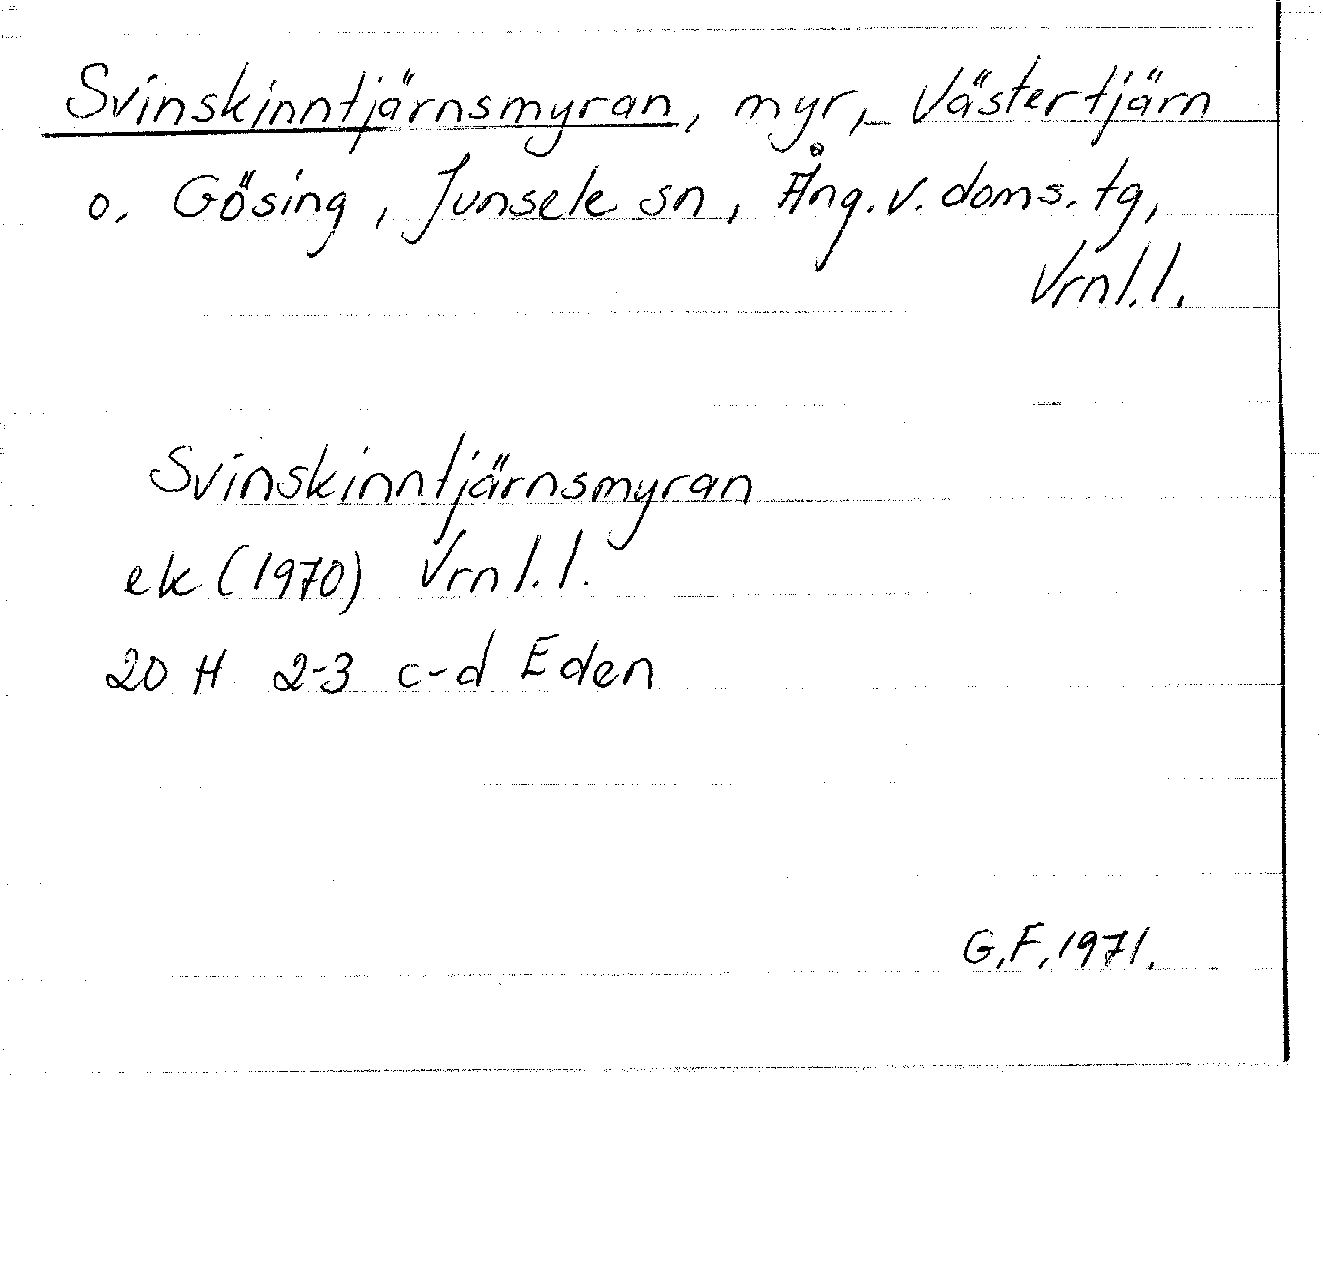 Svinskinntjärnsmyran, myr, Västertjärn
o. Gösing, Junsele sn, Ång. v. doms. tg,
Vrnl. l.
Svinskinntjärnsmyran
ek (1970) Vrnl. l.
20 H 2-3 c-d Eden
G.F. 1971.